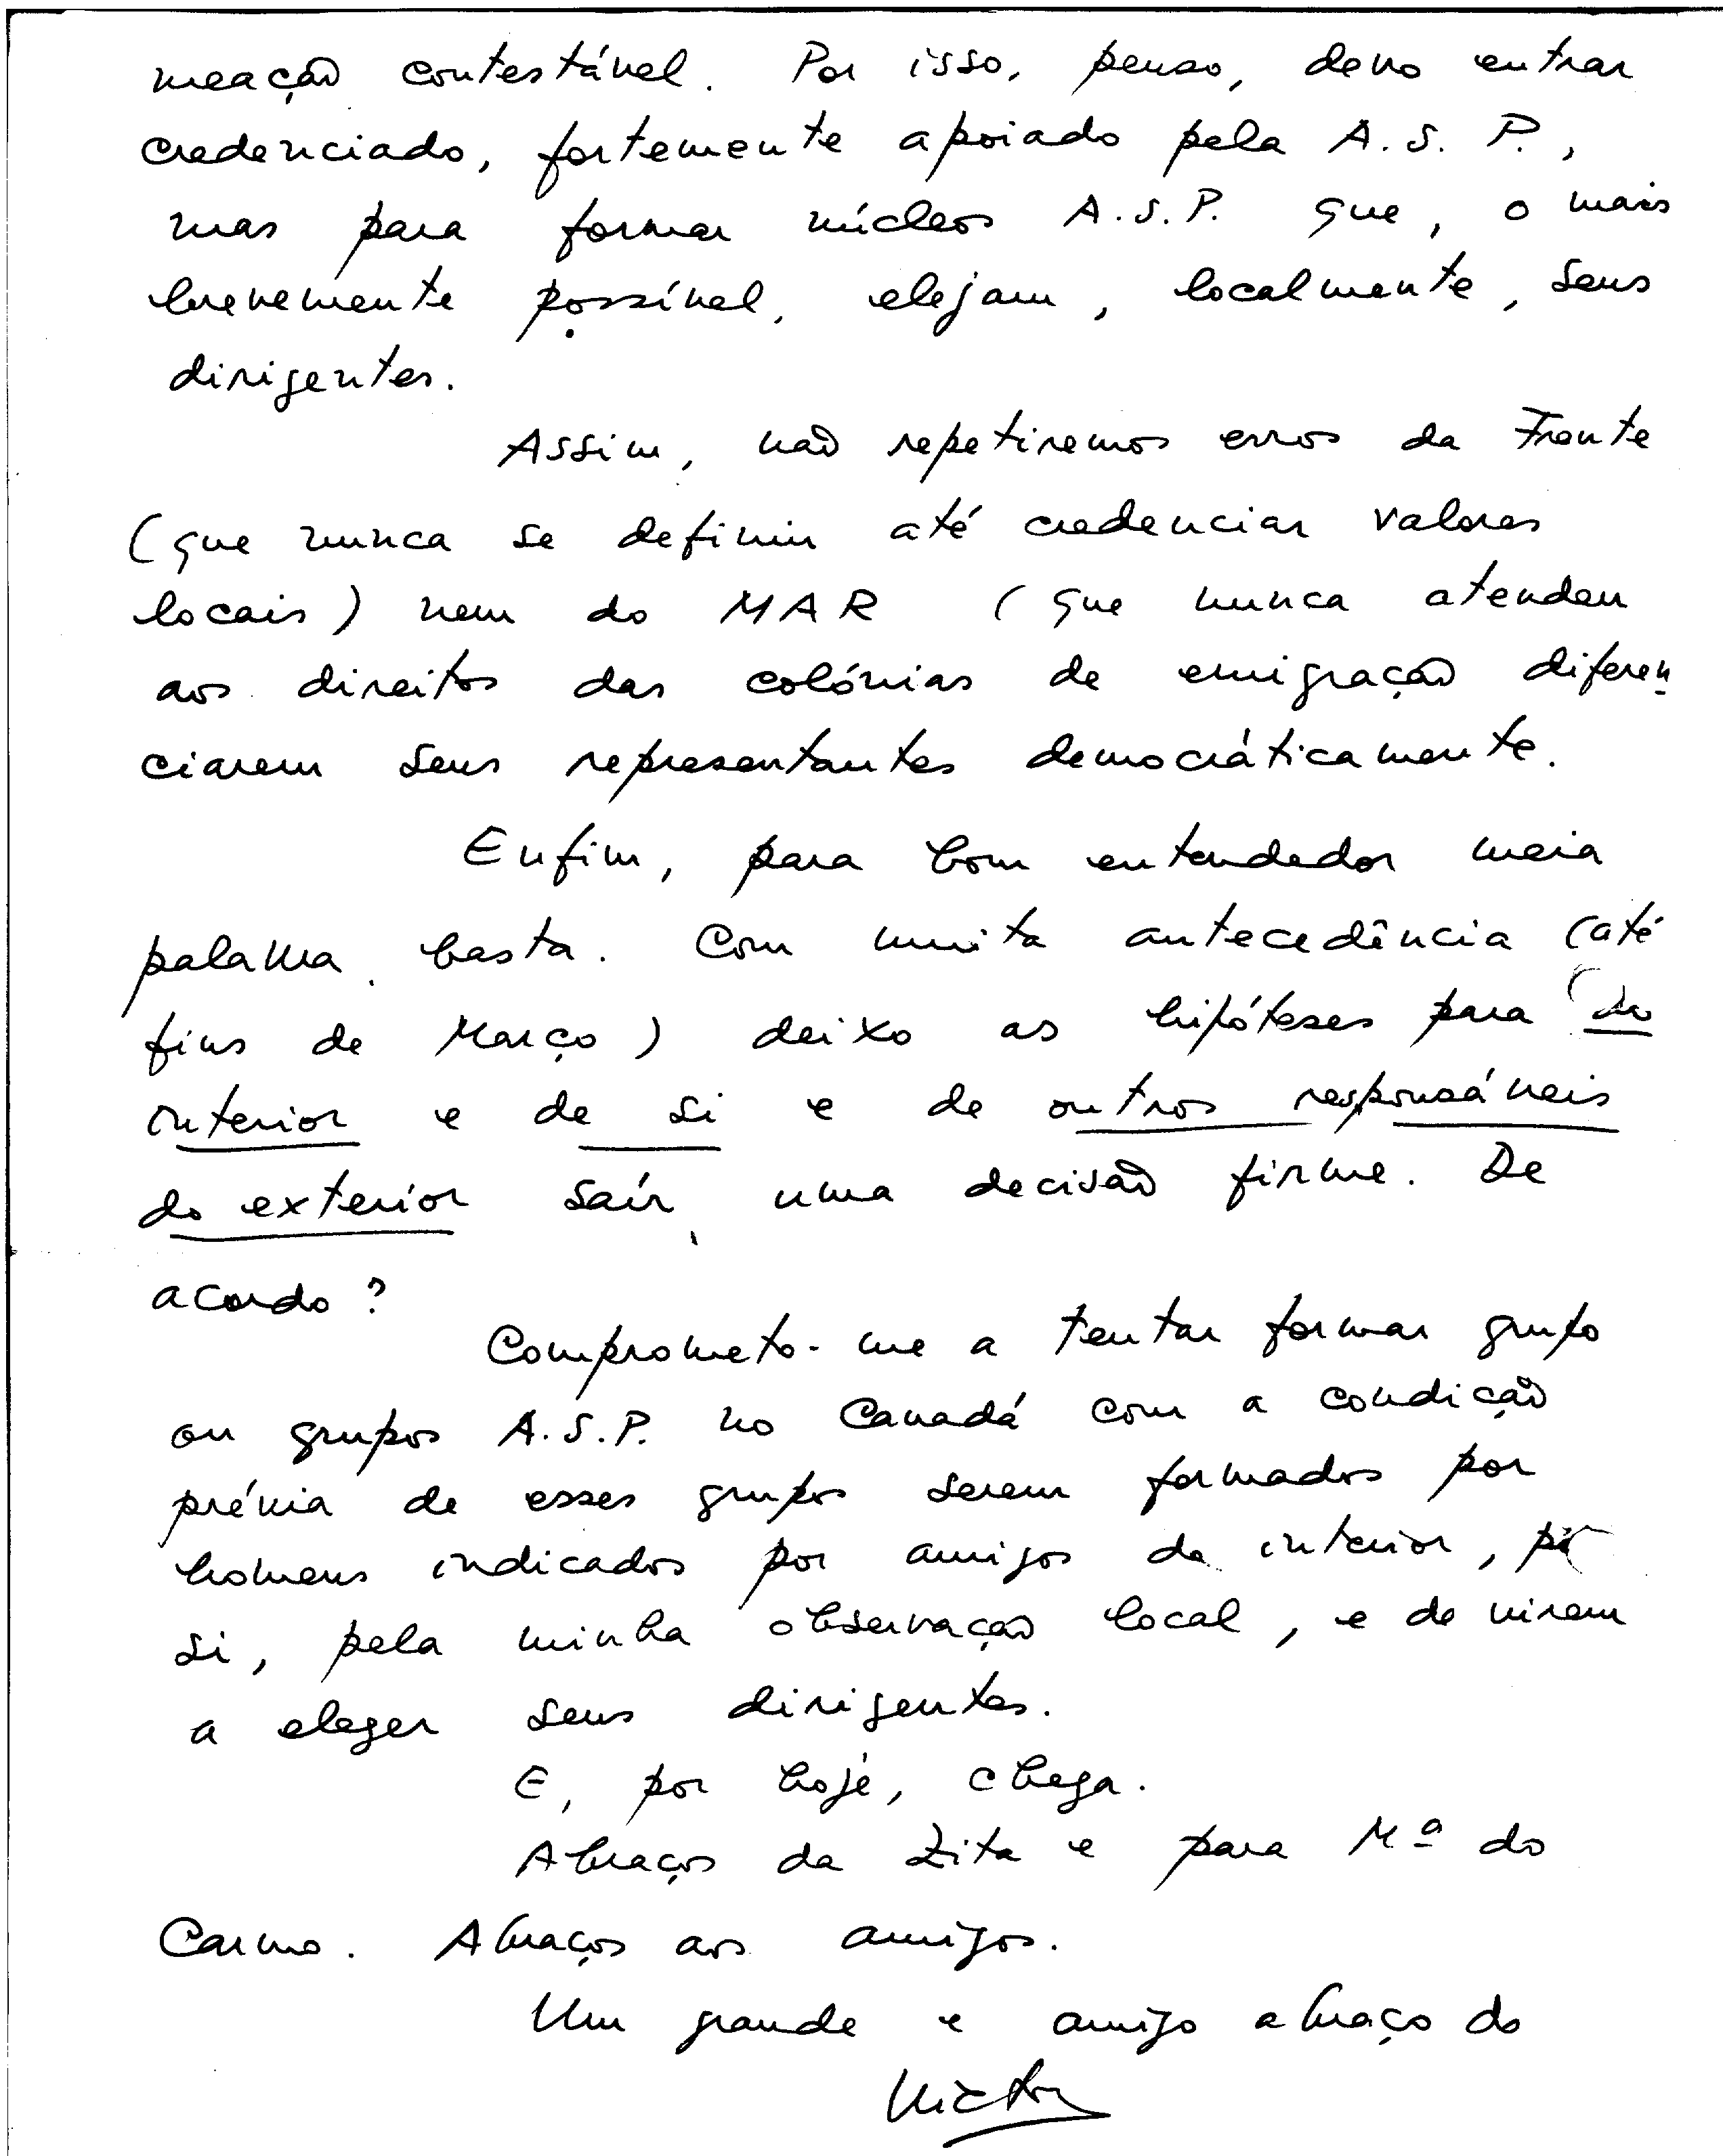 meação contestável. Por isso, penso, devo entrar
credenciado, fortemente apoiado pela A.S.P.,
mas para formar núcleos A.S.P. que, o mais
brevemente possível, elejam, localmente, seus
dirigentes.
Assim, não repetiremos erros da Frente
(que nunca se definiu até credenciar valores
locais) nem do MAR (que nunca atendeu
aos direitos das colónias de emigração diferen
ciarem seus representantes democráticamente.
Enfim, para bom entendedor meia
palavra basta. Com muita antecedência (até
fins de Março) deixo as hipóteses para do
interior e de si e de outros responsáveis
do exterior saír uma decisão firme. De
acordo?
Comprometo-me a tentar formar grupo
ou grupos A.S.P. no Canadá com a condição
prévia de esses grupos serem formados por
homens indicados por amigos do interior, por
si, pela minha observação local, e de virem
a eleger seus dirigentes.
E, por hoje, chega.
Abraços da Zita e para Mª do
Carmo. Abraços aos amigos.
Um grande e amigo abraço do
Victor